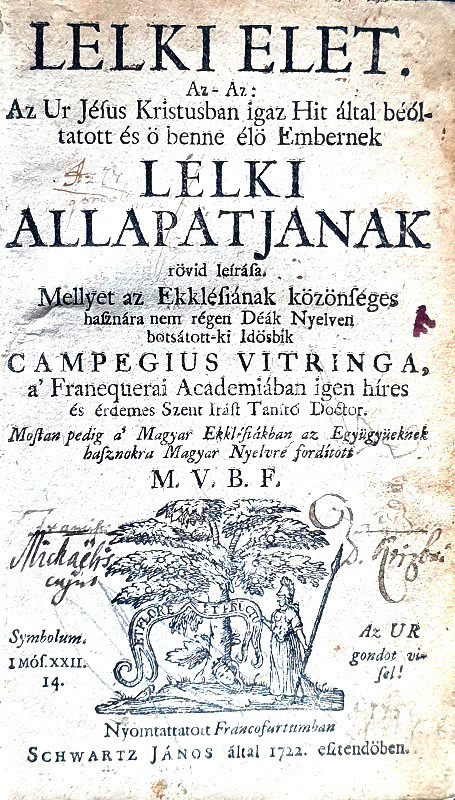 LELKI ELET.
Az-Az:
Az Ur Jésus Kristusban igaz Hit által béól-
tatott és ö benne élö Embernek
LELKI
ALLAPATJANAK
rövid leírása.
Mellyet az Ekklésiának közönséges
hasznára nem régen Déák Nyelven
botsátott-ki Idösbik
CAMPEGIUS VITRINGA,
a' Franequerai Academiában igen híres
és érdemes Szent Irást Tanító Doctor.
Mostan pedig a' Magyar Ekklésiákban az Együgyüeknek
hasznokra Magyar Nyelvre fordított
M. V. B. F.
Michaëlis
ET FLORE ET FRUCTU
Symbolum.
I Mós. XXII.
14.
Az UR
gondot vi-
sel!
Nyomtattatott Francofurtumban
SCHWARTZ JÁNOS által 1722. esztendöben.